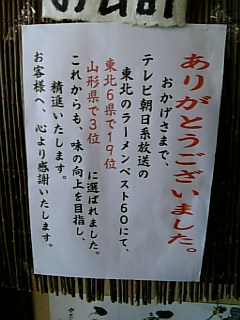 ありがとうございました。
おかげさまで、
テレビ朝日系放送の
東北のラーメンベスト60にて、
東北6県で19位
山形県で3位
に選ばれました。
これからも、味の向上を目指し、
精進いたします。
お客様へ、心より感謝いたします。